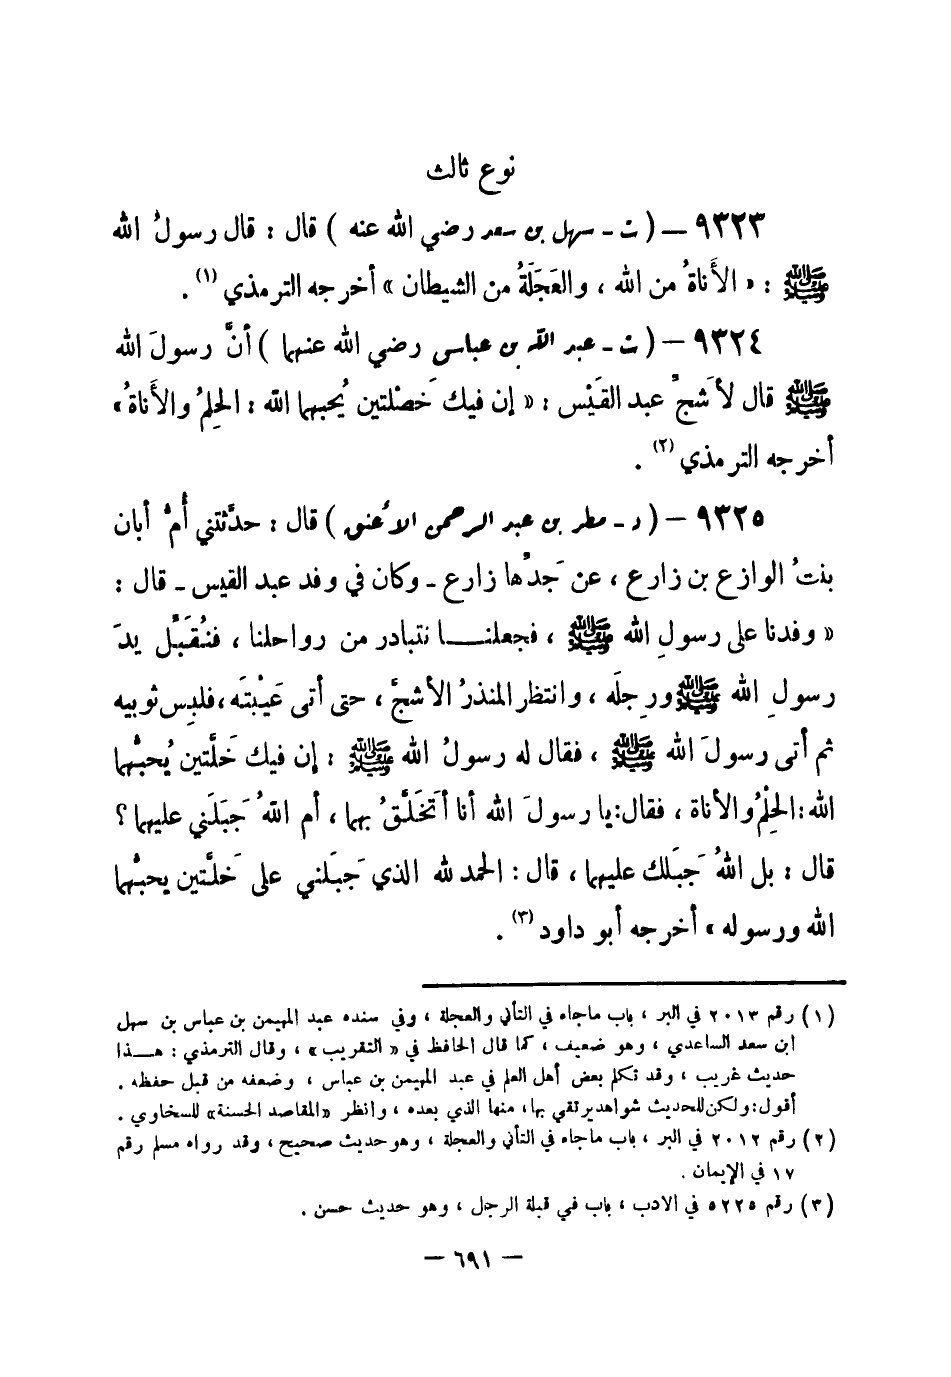 نوع ثالث
٩٣٢٣ – ( ت - سهل بن سعد رضي الله عنه ) قال : قال رسولُ الله
ﷺ : « الأَناةُ من الله ، والعَجَلَةُ من الشيطان » أخرجه الترمذي (١) .
٩٣٢٤ – ( ت - عبد الله بن عباس رضي الله عنهما ) أنَّ رسولَ الله
ﷺ قال لأَشجِّ عبد القَيْس : « إن فيك خَصْلتين يُحبهما الله : الحلِمُ والأَناةُ »
أخرجه الترمذي (٢) .
٩٣٢٥ – ( د - مطر بن عبد الرحمن الأعنق ) قال : حدَّثتني أُمُّ أبان
بنتُ الوازع بن زارع ، عن جَدِّها زارع - وكان في وفد عبد القيس - قال :
« وفدنا على رسولِ الله ﷺ ، فجعلنـــا نتبادر من رواحلنا ، فنُقَبِّل يدَ
رسولِ الله ﷺ ورِجلَه ، وانتظر المنذرُ الأشجُّ ، حتى أتى عَيْبتَه ، فلبِس ثوبيه
ثم أتى رسولَ الله ﷺ ، فقال له رسولُ الله ﷺ : إن فيك خَلَّتين يُحبُّهما
الله : الحِلْمُ والأناة ، فقال : يا رسولَ الله أنا أتَخَلَّقُ بهما ، أم اللهُ جَبَلَني عليهما ؟
قال : بل اللهُ جَبَلك عليهما ، قال : الحمد لله الذي جَبَلني على خَلَّتين يحبُّهما
الله ورسوله » أخرجه أبو داود (٣) .
(١) رقم ٢٠١٣ في البر ، باب ماجاء في التأني والعجلة ، وفي سنده عبد المهيمن بن عباس بن سهل
ابن سعد الساعدي ، وهو ضعيف ، كما قال الحافظ في « التقريب » ، وقال الترمذي : هـــذا
حديث غريب ، وقد تكلم بعض أهل العلم في عبد المهيمن بن عباس ، وضعفه من قبل حفظه .
أقول : ولكن للحديث شواهد يرتقي بها ، منها الذي بعده ، وانظر «المقاصد الحسنة» للسخاوي .
(٢) رقم ٢٠١٢ في البر ، باب ماجاء في التأني والعجلة ، وهو حديث صحيح ، وقد رواه مسلم رقم
١٧ في الإيمان .
(٣) رقم ٥٢٢٥ في الادب ، باب في قبلة الرجل ، وهو حديث حسن .
– ٦٩١ –